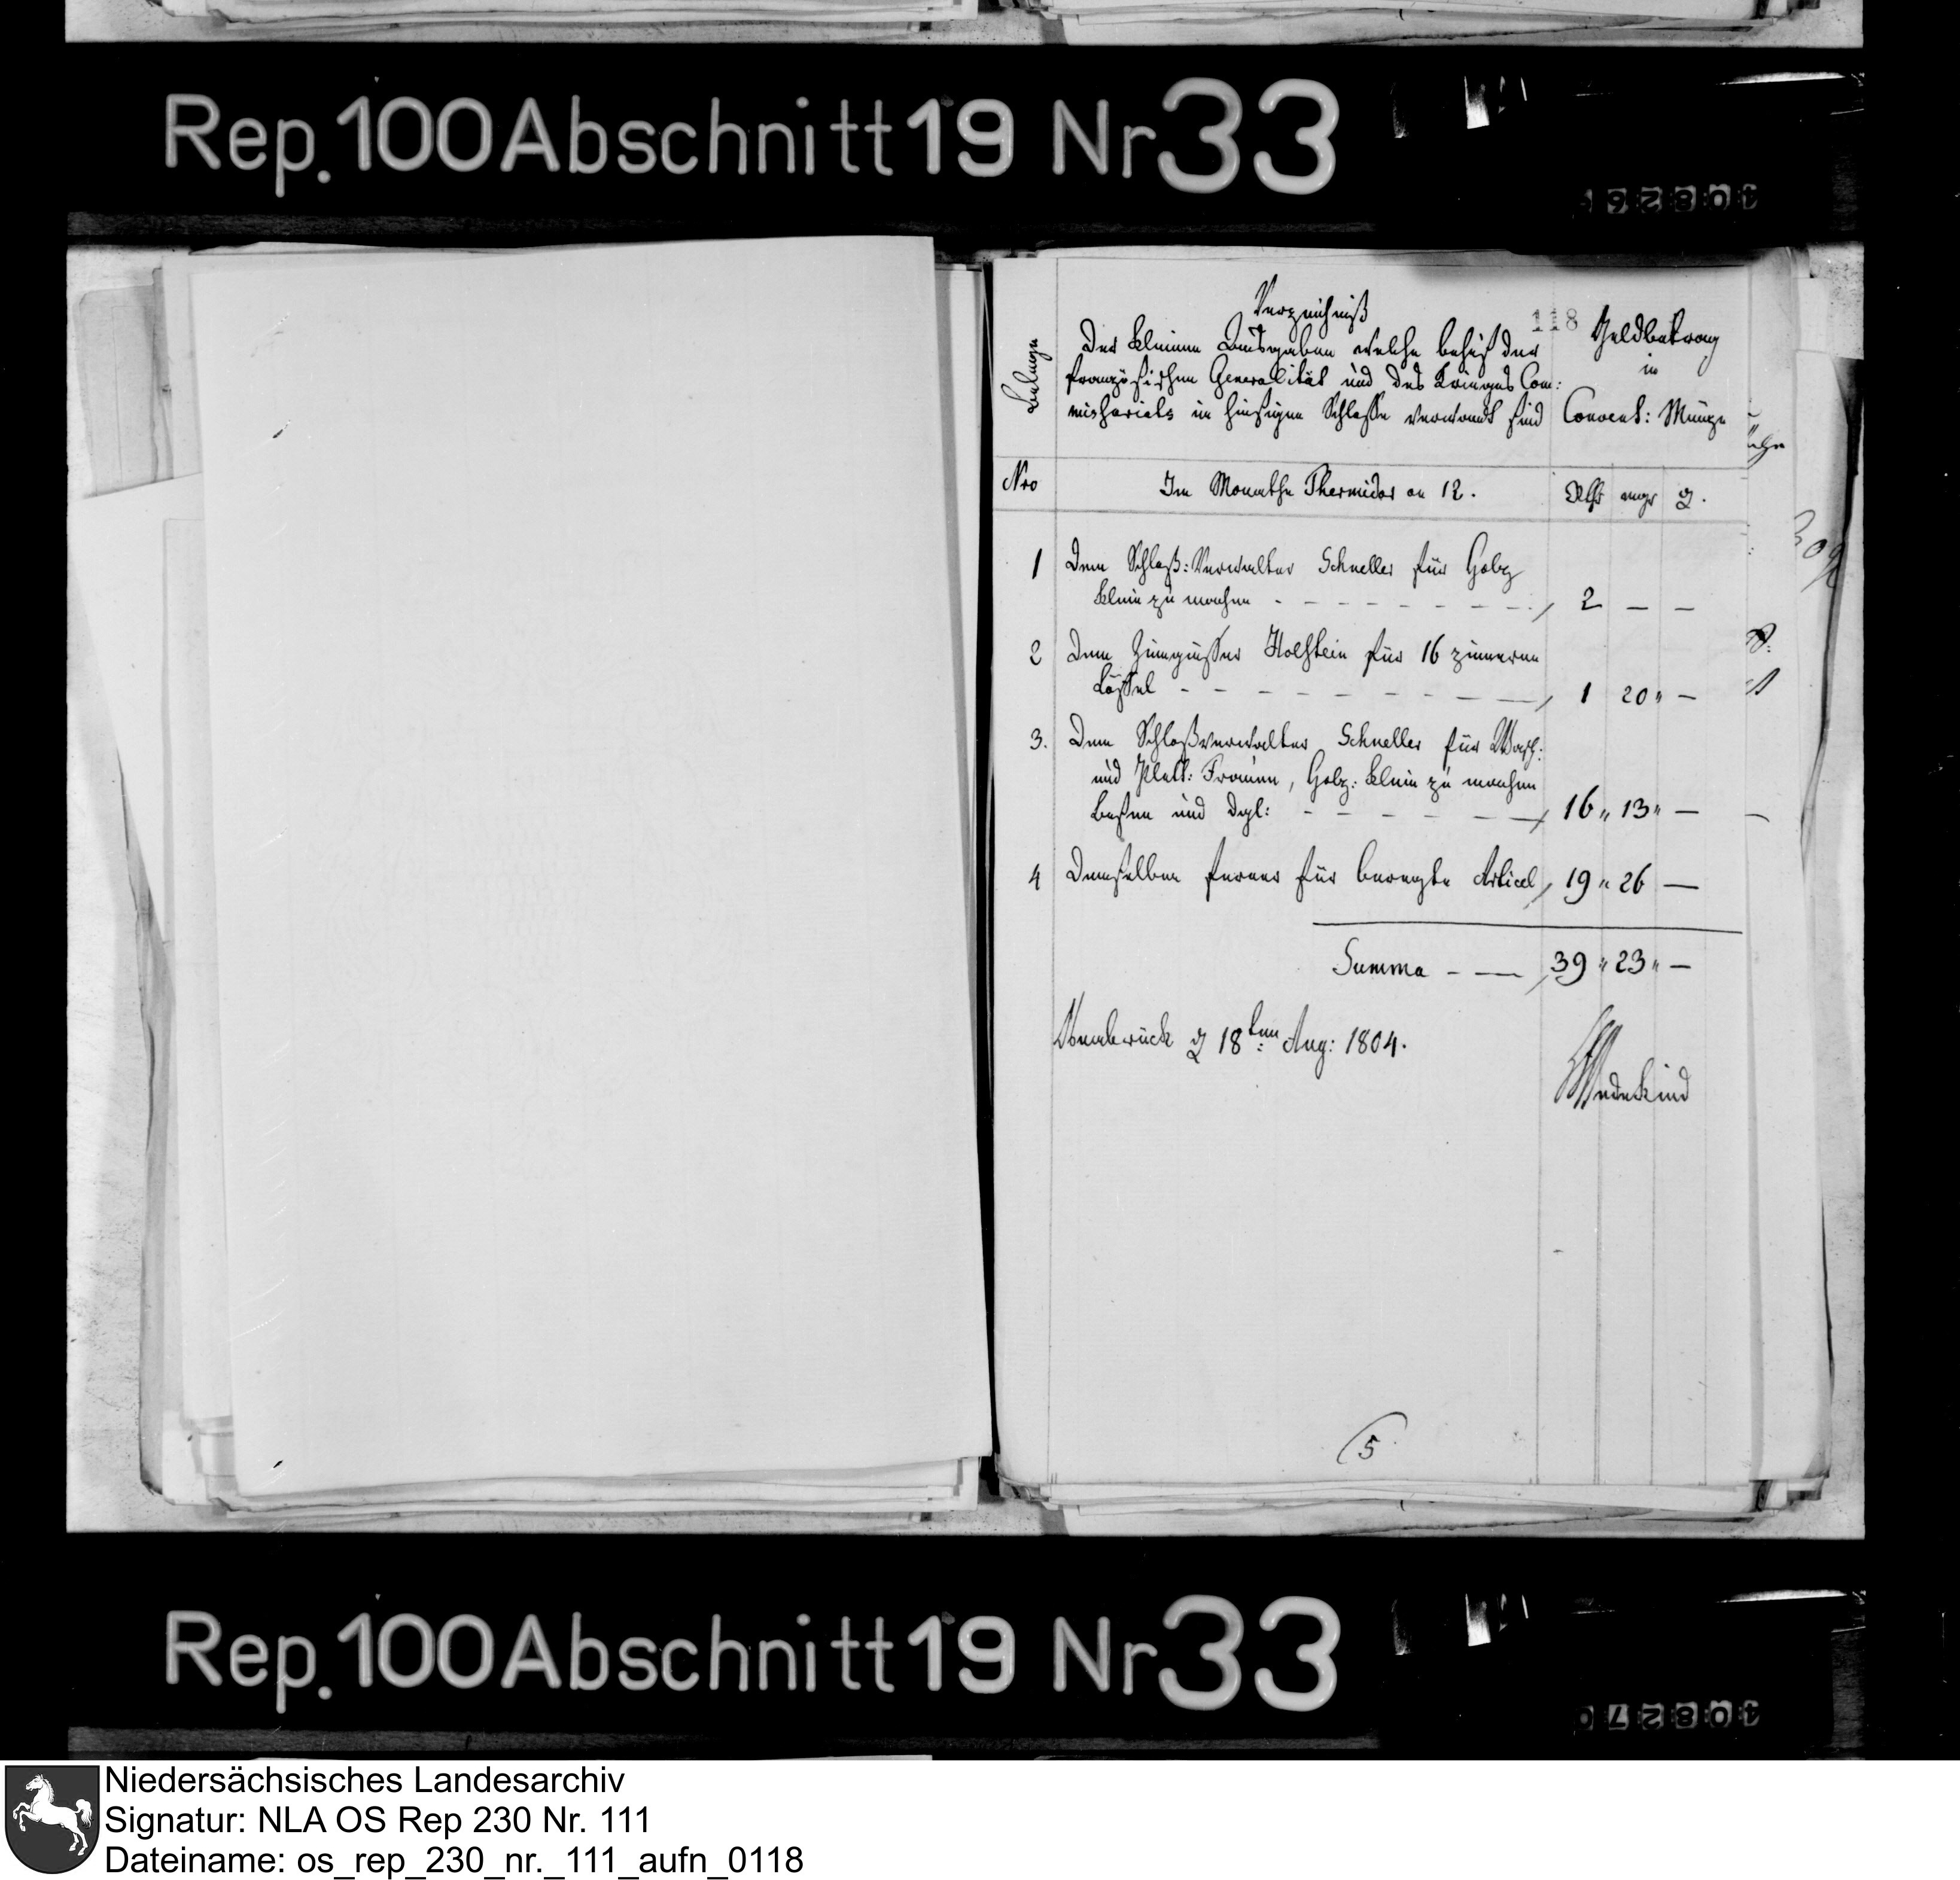 Rep. 100 Abschnitt 19 Nr 33
40826
118
Verzeichniß
Der kleinen Ausgaben welche behuf der
französischen Generalität und des Krieges Com:
missariats in hiesigen Schlosse verwandt sind
Belege
Geldbetrag
in
Convent: Münze
Nro
Im Monathe Thermidor an 12.
Rthr mgr ₰.
1 Dem Schloß: Verwalter Schneller für Holz
klein zu machen - - - - - - - - 2 — —
2 Dem Zinngießer Holstein für 16 zinnerne
Löffel - - - - - - - - - - 1 20 " —
3. Dem Schloßverwalter Schneller für Wasch:
und Plett: Frauen, Holz: klein zu machen
Besen und dgl: - - - - - - 16 " 13 " —
4 Demselben ferner für beregte Articel 19 " 26 —
Summa - — 39 " 23 " —
Osnabrück d 18ten Aug: 1804.
Wedekind
5
Rep. 100 Abschnitt 19 Nr 33
408270
Niedersächsisches Landesarchiv
Signatur: NLA OS Rep 230 Nr. 111
Dateiname: os_rep_230_nr._111_aufn_0118